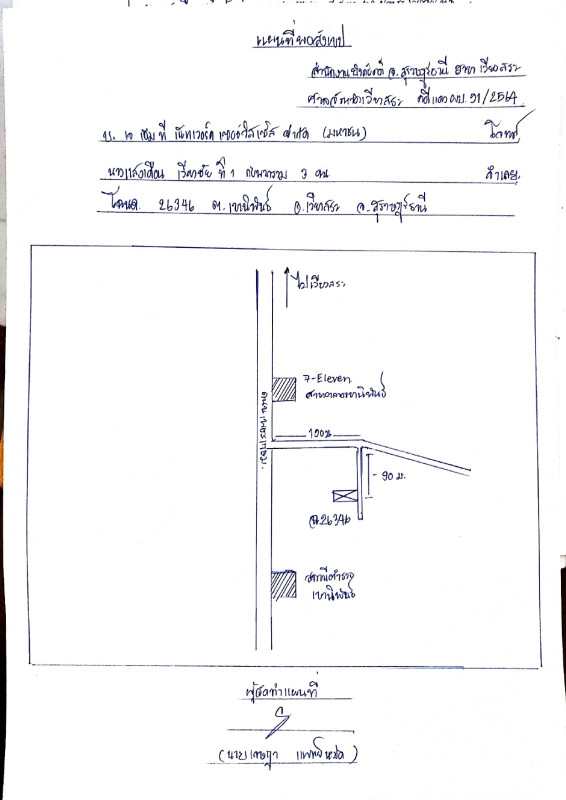 แผนที่พอสังเขป
สำนักงานบังคับคดี จ.สุราษฎร์ธานี สาขา เวียงสระ
ศาลจังหวัดเวียงสระ คดีแดง ผบ. 91/2564
บ. เจ เอ็ม ที เน็ทเวอร์ค เซอร์วิสเซ็ส จำกัด (มหาชน) โจทก์
นางแสงเดือน ที่ 1 กับพวกรวม 3 คน จำเลย
โฉนด 26346 ต.เขานิพันธ์ อ.เวียงสระ จ.สุราษฎร์ธานี
ไปเวียงสระ
7-Eleven
สาขาเขานิพันธ์
100ม
90 ม.
ฉ.26346
สถานีตำรวจ
เขานิพันธ์
ผู้จัดทำแผนที่